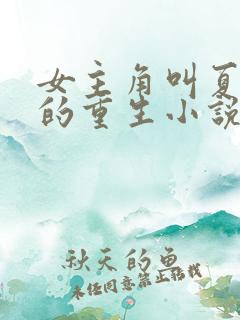 女主角叫夏
的重生小說
秋天的魚
未经同意禁止转载